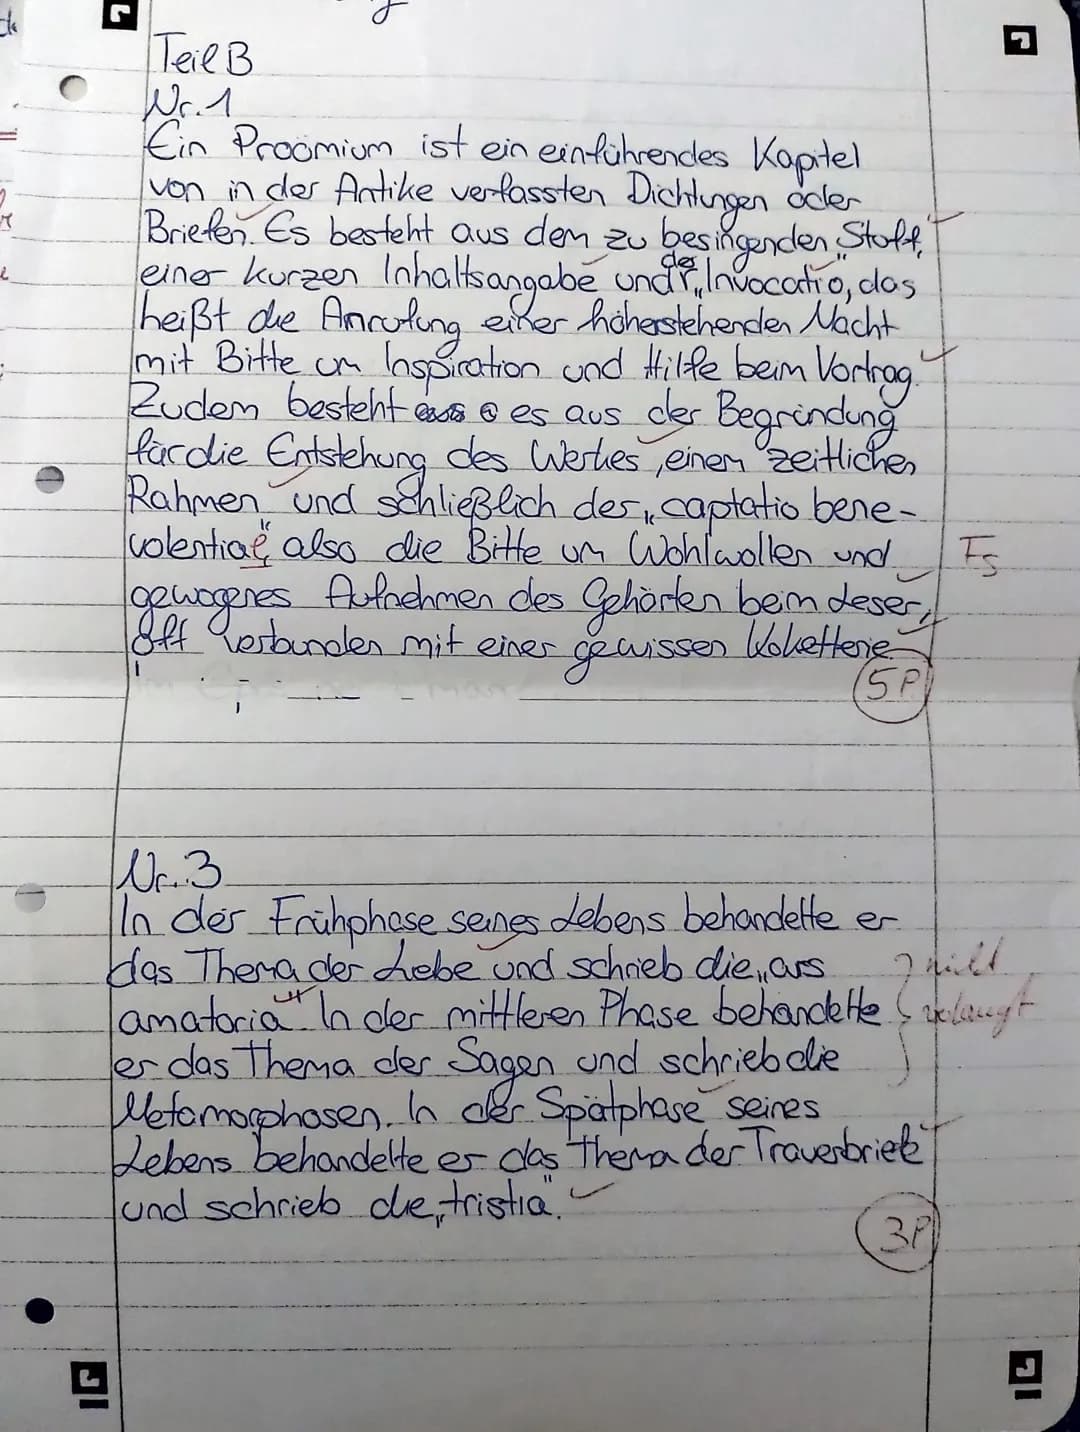 Teil B
Nr. 1
Ein Proömium ist ein einführendes Kapitel
von in der Antike verfassten Dichtungen oder
Briefen. Es besteht aus dem zu besingenden Stoff,
einer kurzen Inhaltsangabe und der „Invocatio", das
heißt die Anrufung einer höherstehenden Macht
mit Bitte um Inspiration und Hilfe beim Vortrag.
Zudem besteht es aus der Begründung
für die Entstehung des Werkes, einem zeitlichen
Rahmen und schließlich der „captatio bene-
volentiae" also die Bitte um Wohlwollen und
Fs
gewogenes Aufnehmen des Gehörten beim Leser,
oft verbunden mit einer gewissen Koketterie
5P
Nr. 3
In der Frühphase seines Lebens behandelte er
das Thema der Liebe und schrieb die „ars
nicht
amatoria". In der mittleren Phase behandelte
verlangt
er das Thema der Sagen und schrieb die
Metamorphosen. In der Spätphase seines
Lebens behandelte er das Thema der Trauerbriefe
und schrieb die „tristia".
3P